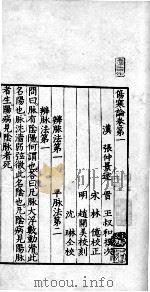 傷寒論卷第一
漢 張仲景述 晉 王叔和撰次
宋 林億校正
明 趙開美校刻
沈琳仝校
辨脉法第一 平脉法第二
辨脉法第一
問曰脉有陰陽何謂也答曰凡脉大浮數動滑此
名陽也脉沈濇弱弦微此名陰也凡陰病見陽脉
者生陽病見陰脉者死